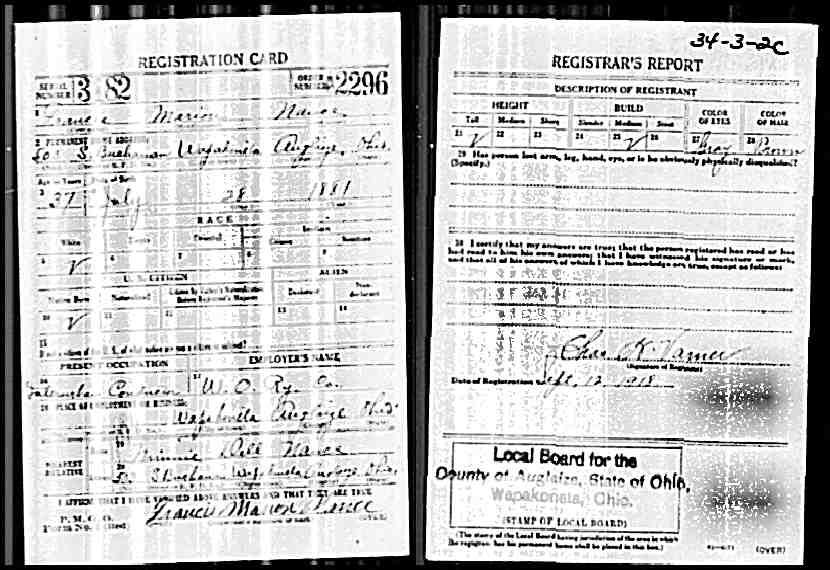 REGISTRATION CARD
SERIAL NUMBER 3182 ORDER NUMBER 2296
1 Francis Marion Nance
2 PERMANENT HOME ADDRESS:
503 S. Buchanan Wapakoneta Auglaize Ohio
Age in Years Date of Birth
3 37 July 28 1881
RACE
White Oriental Indian
Citizen
5 ✓ 6 7 8 9
U. S. CITIZEN ALIEN
Native Born Naturalized Citizen by Father's Naturalization Before Registrant's Majority Declarant Non-declarant
10 ✓ 11 12 13 14
15
PRESENT OCCUPATION EMPLOYER'S NAME
16 Conductor 17 W. O. Ry. Co.
18 PLACE OF EMPLOYMENT OR BUSINESS:
Wapakoneta Auglaize Ohio
NEAREST RELATIVE Name 19 Minnie Dell Nance
20 503 S Buchanan Wapakoneta Auglaize Ohio
I AFFIRM THAT I HAVE VERIFIED ABOVE ANSWERS AND THAT THEY ARE TRUE
P. M. G. O.
Form No. 1 (Red) Francis Marion Nance
34-3-2C
REGISTRAR'S REPORT
DESCRIPTION OF REGISTRANT
HEIGHT BUILD COLOR OF EYES COLOR OF HAIR
Tall Medium Short Slender Medium Stout
21 ✓ 22 23 24 25 ✓ 26 27 Gray 28 Brown
29 Has person lost arm, leg, hand, eye, or is he obviously physically disqualified?
(Specify.)
30 I certify that my answers are true; that the person registered has read or has
had read to him his own answers; that I have witnessed his signature or mark,
and that all of his answers of which I have knowledge are true, except as follows:
Chas K.
(Signature of Registrar)
Date of Registration Sept. 12, 1918
Local Board for the
County of Auglaize, State of Ohio,
Wapakoneta, Ohio.
(STAMP OF LOCAL BOARD)
(The stamp of the Local Board having jurisdiction of the area in which
the registrant has his permanent home shall be placed in this box.)
(OVER)